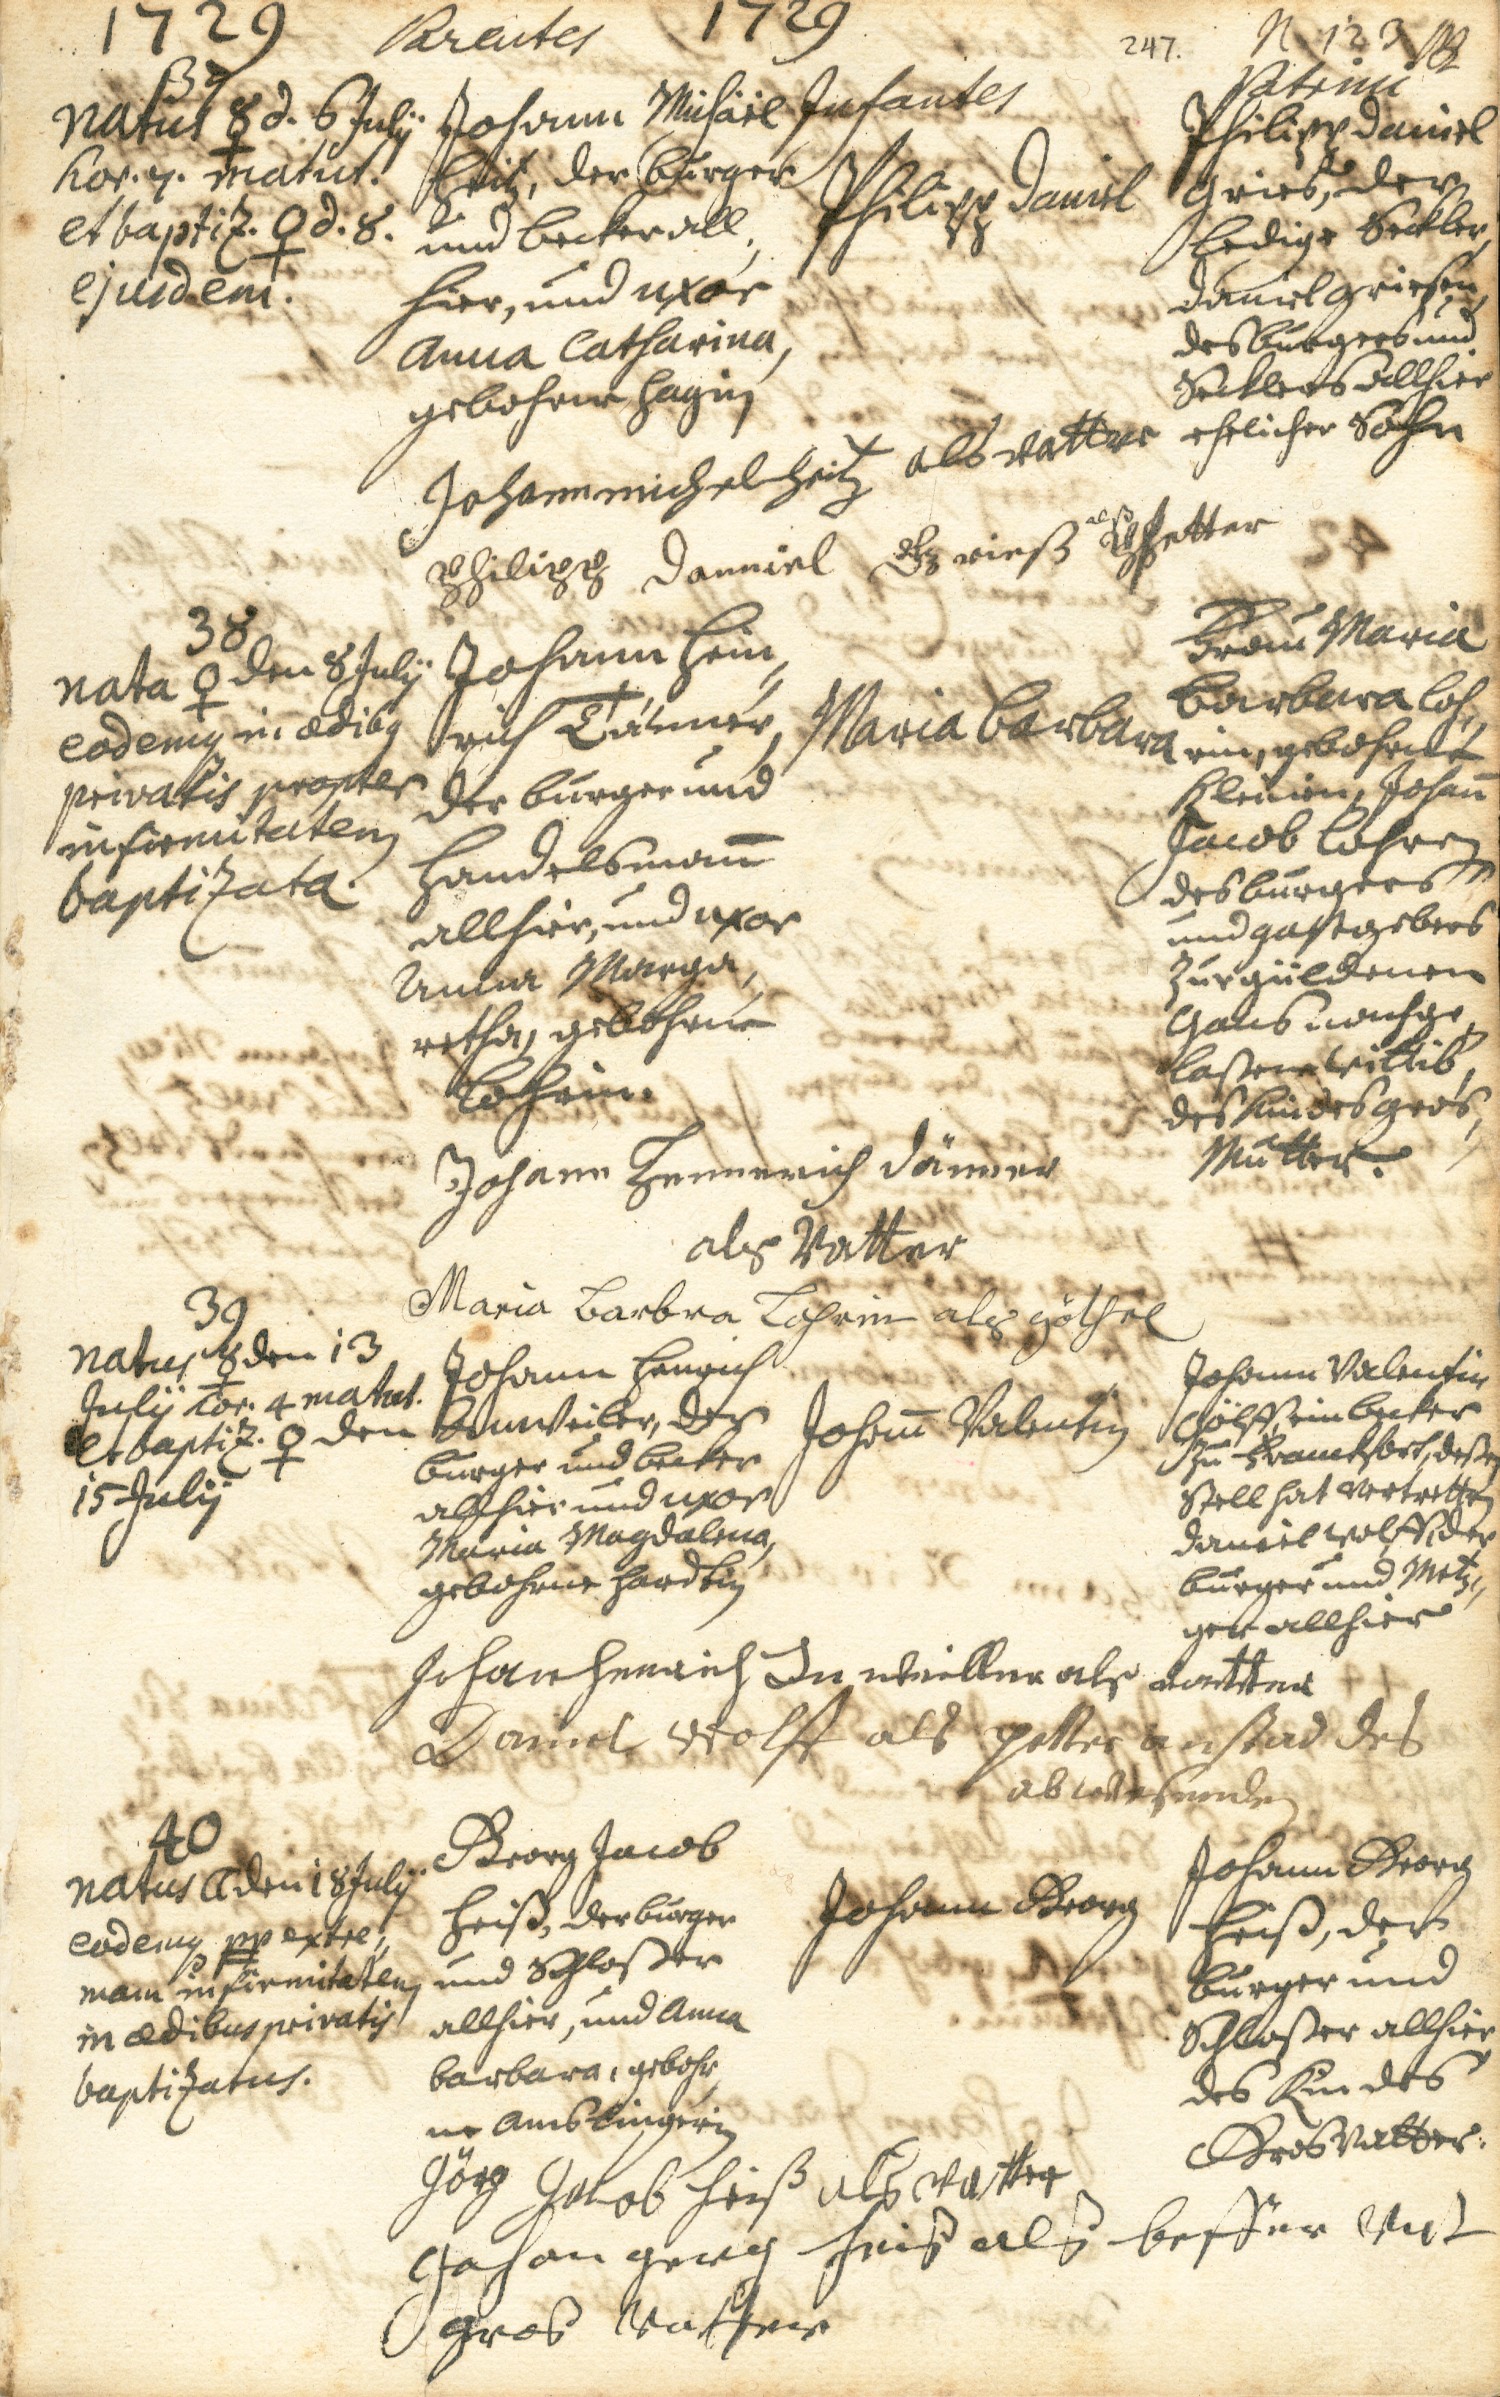 1729 Parentes 1729 247. N 123
Infantes
Patrini
37
natus ☿ d. 6 July
hor. 7. matut.
et baptiz. ♀ d. 8.
ejusdem.
Johann Michäel
Heitz, der burger
und becker all,
hier, und uxor
Anna Catharina,
gebohrne Hagin
Philipp Daniel
Philipp Daniel
Gries, der
ledige Seckler,
Daniel Griesen,
des burgers und
Secklers allhier
ehelicher Sohn
Johann michel heitz als vatter
Philipp Danniel Grieß alß Pfetter
38
nata ♀ den 8 July
eodemq in ædibq
privatis propter
infirmitatem
baptizata.
Johann Hein,,
rich Tänner,
der burger und
Handelsmañ
allhier, und uxor
Anna Marga,,
retha, gebohrne
Lohrin.
Maria Barbara
Frau Maria
Barbara Loh,,
rin, gebohrne
Kleinin, Johañ
Jacob Lohren
des burgers
und gastgebers
Zur güldenen
Gans nachge,,
laßene Wittib,
des Kindes gros,,
Mutter.
Johann Hennerich Dänner
als Vatter
Maria Barbra Lohrin als göthel
39
natus ☿ den 13
July hor. 4 matut.
et baptiz. ♀ den
15 July
Johann Henrich
Anweiler, der
burger und becker
allhier und uxor
Maria Magdalena,
gebohrne Hardtin
Johañ Valentin
Johann Valentin
Wolff, ein becker
zu Franckfort, deßen
Stell hat vertretten
Daniel Wolff, der
burger und Metz,,
ger allhier
Johan henrich An weiller als vatter
Daniel Wolff als petter anstad des
abwesenden
40
natus ☾ den 18 July
eodemq pp extre,,
mam infirmitatem
in ædibus privatis
baptizatus.
Georg Jacob
Heiß, der burger
und Schloßer
allhier, und Anna
Barbara, gebohr,,
ne Amslingerin
Johann Georg
Johann Georg
Heiß, der
burger und
Schloßer allhier
des Kindes
Gros Vatter.
Jörg Jacob heiß als vatter
Johan georg heis als Vnt
gros vatter